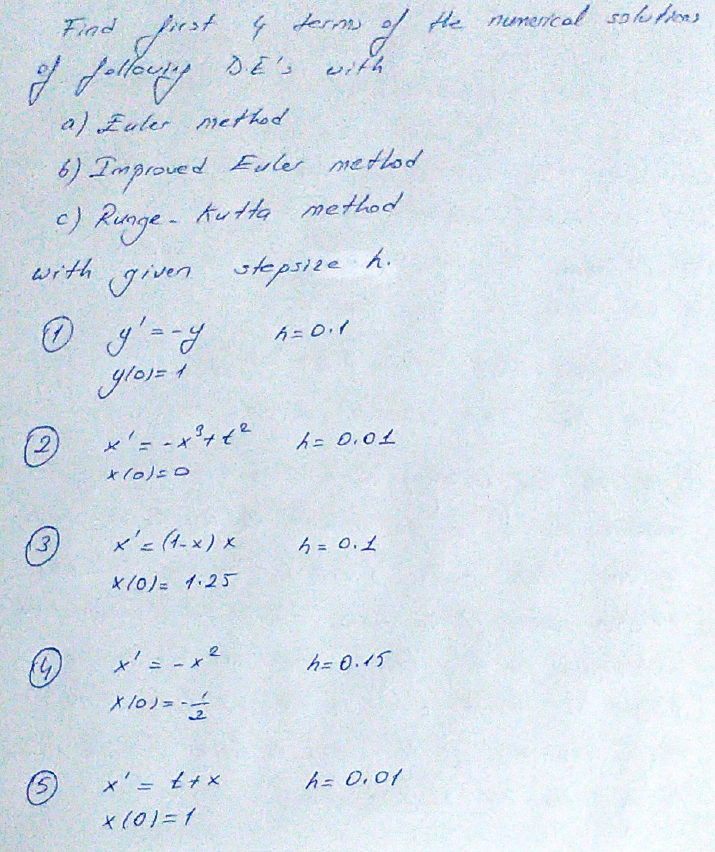 Find first 4 terms of the numerical solutions
of following D.E's with
a) Euler method
b) Improved Euler method
c) Runge-Kutta method
with given stepsize h.
① y' = -y h = 0.1
y(0) = 1
② x' = -x³ + t² h = 0.01
x(0) = 0
③ x' = (1-x) x h = 0.1
x(0) = 1.25
④ x' = -x² h = 0.15
x(0) = -1/2
⑤ x' = t + x h = 0.01
x(0) = 1